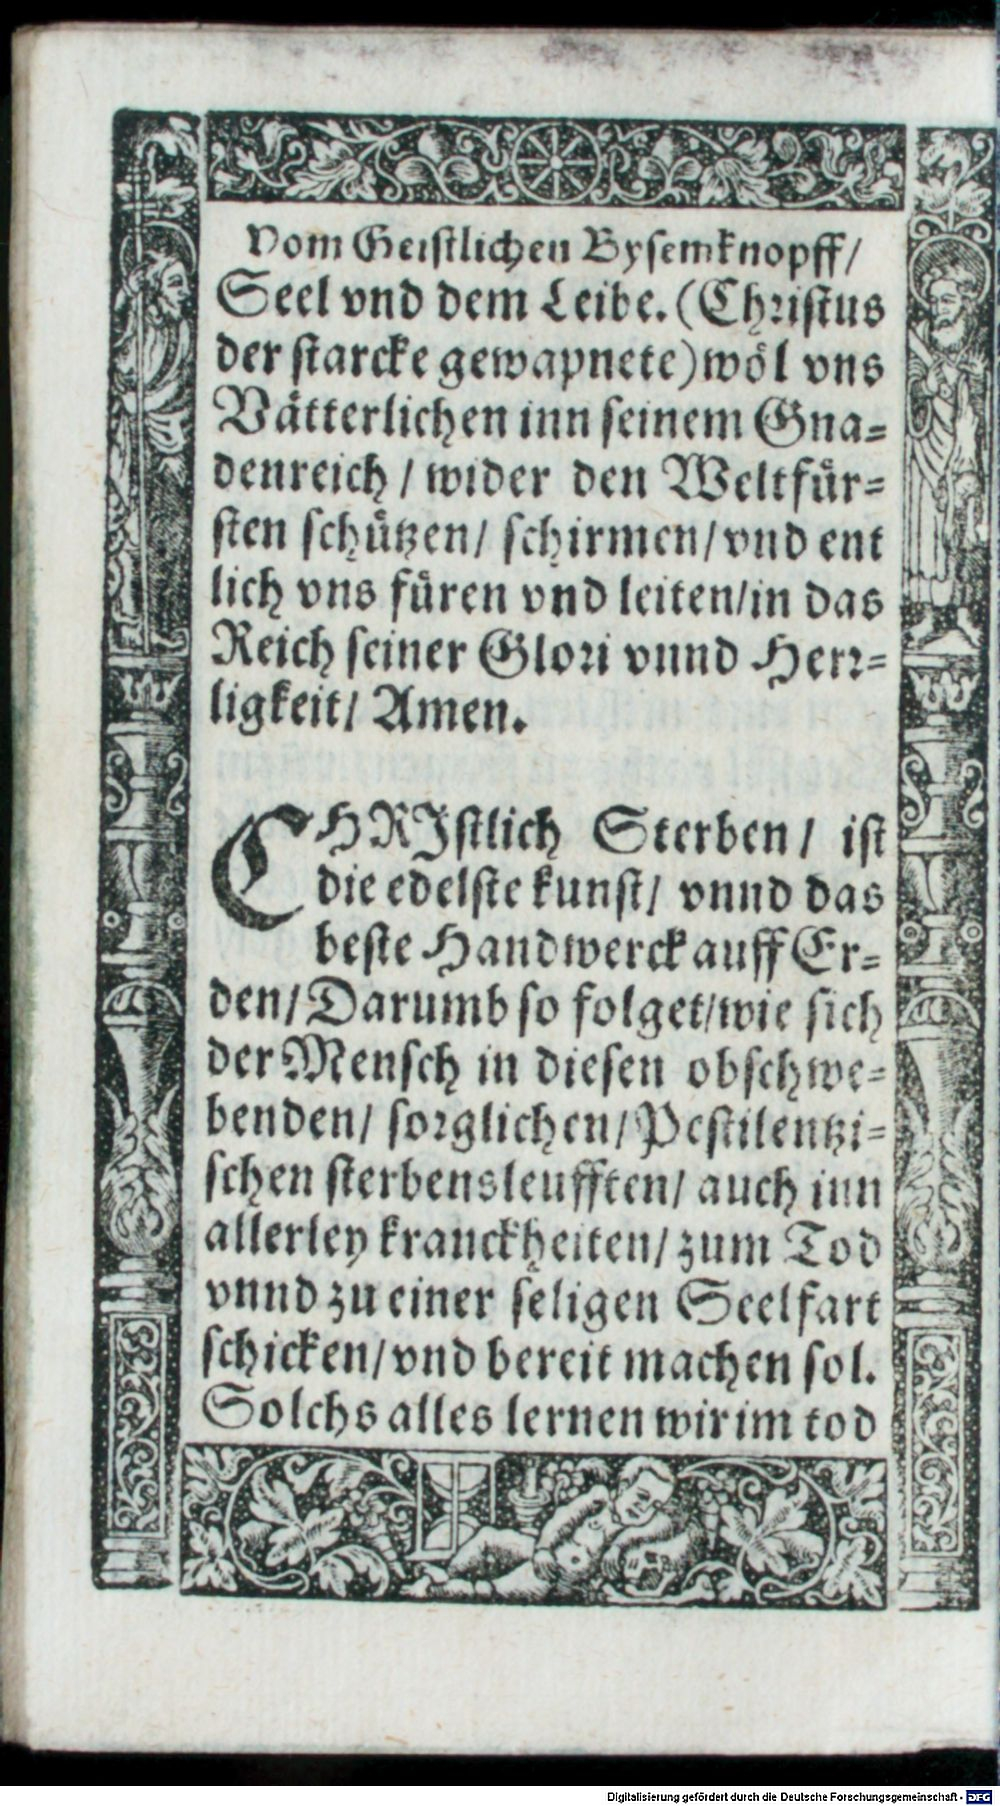 Vom Geistlichen Bysemknopff/
Seel vnd dem Leibe. (Christus
der starcke gewapnete) wöl vns
Vätterlichen inn seinem Gna=
denreich / wider den Weltfür=
sten schützen/ schirmen/ vnd ent
lich vns füren vnd leiten/in das
Reich seiner Glori vnnd Herr=
ligkeit/ Amen.
CHRIstlich Sterben/ ist
die edelste kunst/ vnnd das
beste Handwerck auff Er=
den/ Darumb so folget/wie sich
der Mensch in diesen obschwe=
benden/ sorglichen/ Pestilentzi=
schen sterbensleufften/ auch inn
allerley kranckheiten/ zum Tod
vnnd zu einer seligen Seelfart
schicken/ vnd bereit machen sol.
Solchs alles lernen wir im tod
Digitalisierung gefördert durch die Deutsche Forschungsgemeinschaft - DFG